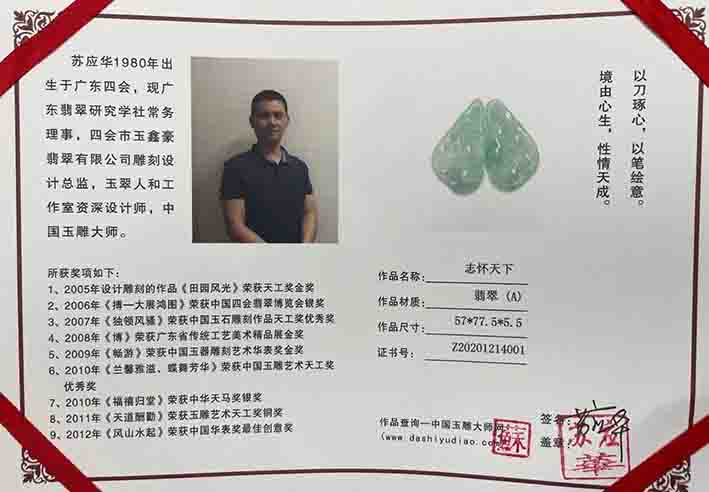 苏应华1980年出
生于广东四会，现广
东翡翠研究学社常务
理事，四会市玉鑫豪
翡翠有限公司雕刻设
计总监，玉翠人和工
作室资深设计师，中
国玉雕大师。
以刀琢心，以笔绘意。
境由心生，性情天成。
所获奖项如下：
1、2005年设计雕刻的作品《田园风光》荣获天工奖金奖
2、2006年《搏一大展鸿图》荣获中国四会翡翠博览会银奖
3、2007年《独领风骚》荣获中国玉石雕刻作品天工奖优秀奖
4、2008年《博》荣获广东省传统工艺美术精品展金奖
5、2009年《畅游》荣获中国玉器雕刻艺术华表奖金奖
6、2010年《兰馨雅溢、蝶舞芳华》荣获中国玉雕艺术天工奖
优秀奖
7、2010年《福禧归堂》荣获中华天马奖银奖
8、2011年《天道酬勤》荣获玉雕艺术天工奖铜奖
9、2012年《风山水起》荣获中国华表奖最佳创意奖
作品名称：志怀天下
作品材质：翡翠 (A)
作品尺寸：57*77.5*5.5
证书号：Z20201214001
作品查询一中国玉雕大师网
(www.dashiyudiao.com)
签名：
盖章：